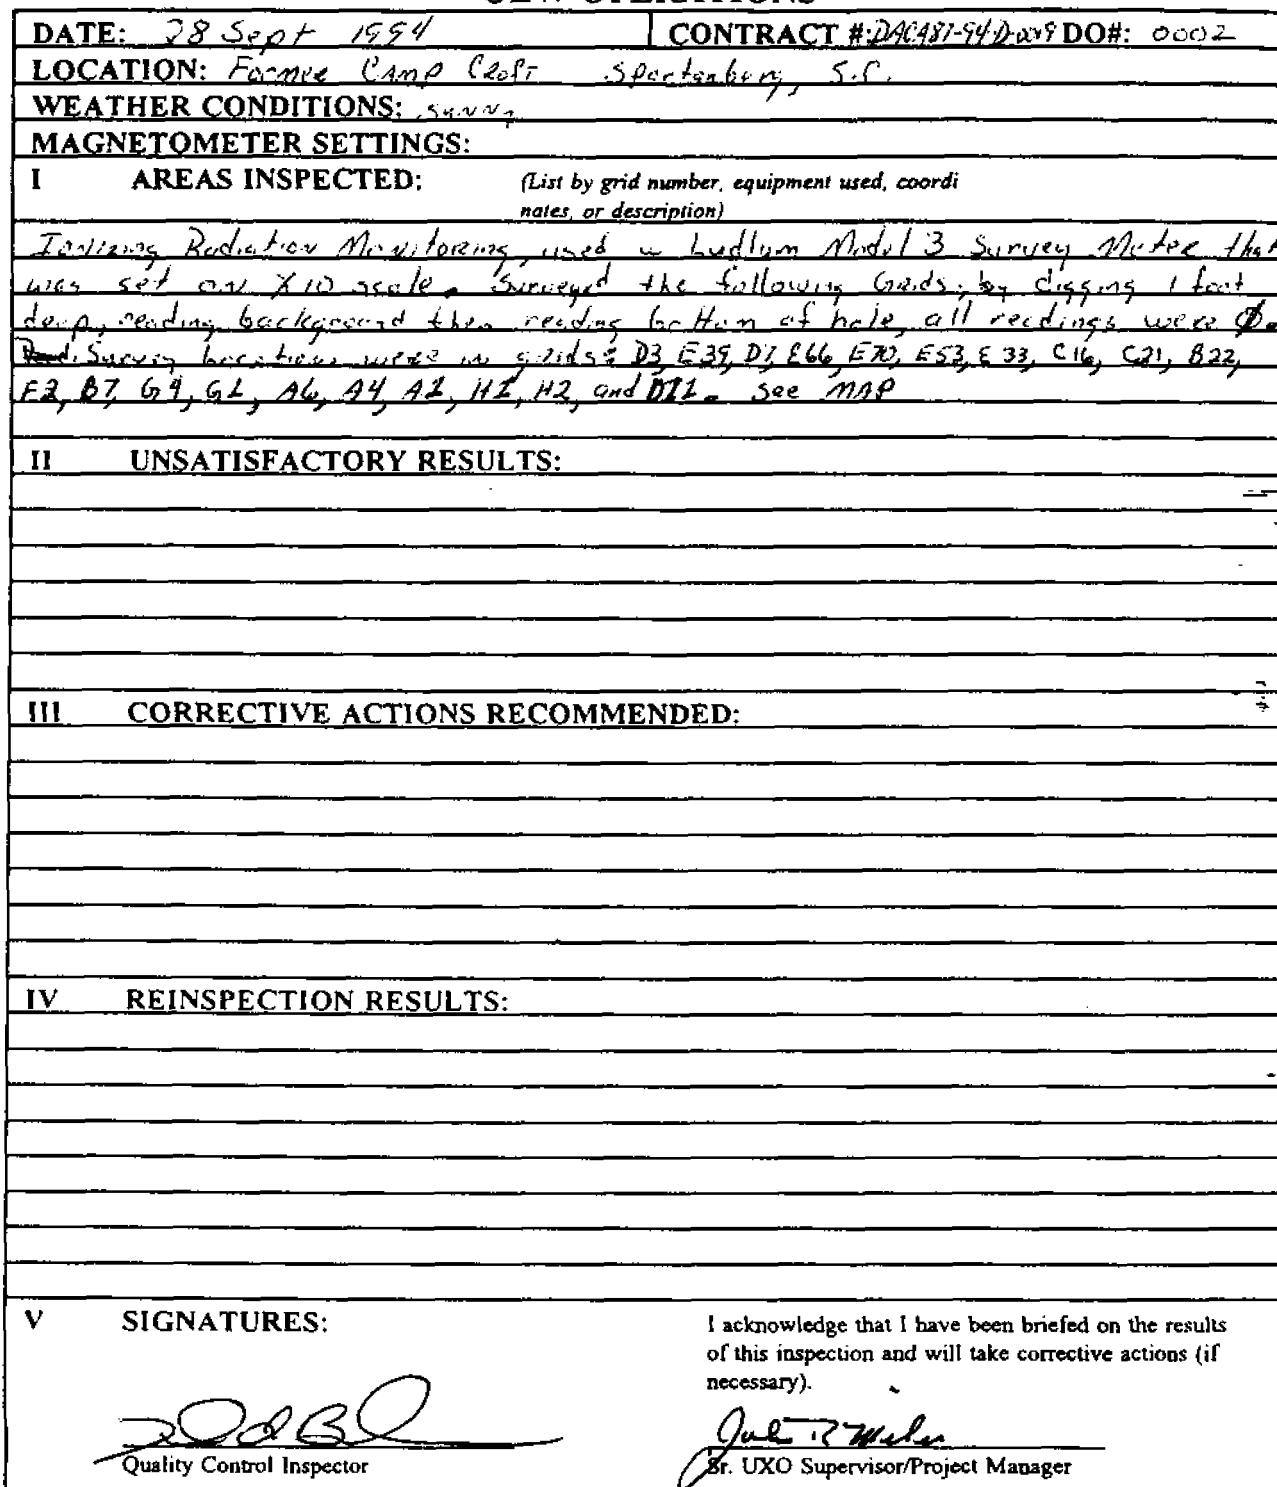 DATE: 28 Sept 1994 CONTRACT #: DACA87-94-D-0019 DO#: 0002
LOCATION: Former Camp Croft Spartanburg, S.C.
WEATHER CONDITIONS: sunny
MAGNETOMETER SETTINGS:
I AREAS INSPECTED: (List by grid number, equipment used, coordi
nates, or description)
Ionizing Radiation Monitoring, used a Ludlum Model 3 Survey Meter that
was set on X10 scale. Surveyed the following Grids, by digging 1 foot
deep, reading background then reading bottom of hole, all readings were Ø.
Survey locations were in grids: D3, E39, D7, E66, E70, E53, E33, C16, C21, B22,
F2, B7, G4, G1, A6, A4, A1, H1, H2, and D11. See MAP
II UNSATISFACTORY RESULTS:
III CORRECTIVE ACTIONS RECOMMENDED:
IV REINSPECTION RESULTS:
V SIGNATURES:
I acknowledge that I have been briefed on the results
of this inspection and will take corrective actions (if
necessary).
Quality Control Inspector
Sr. UXO Supervisor/Project Manager